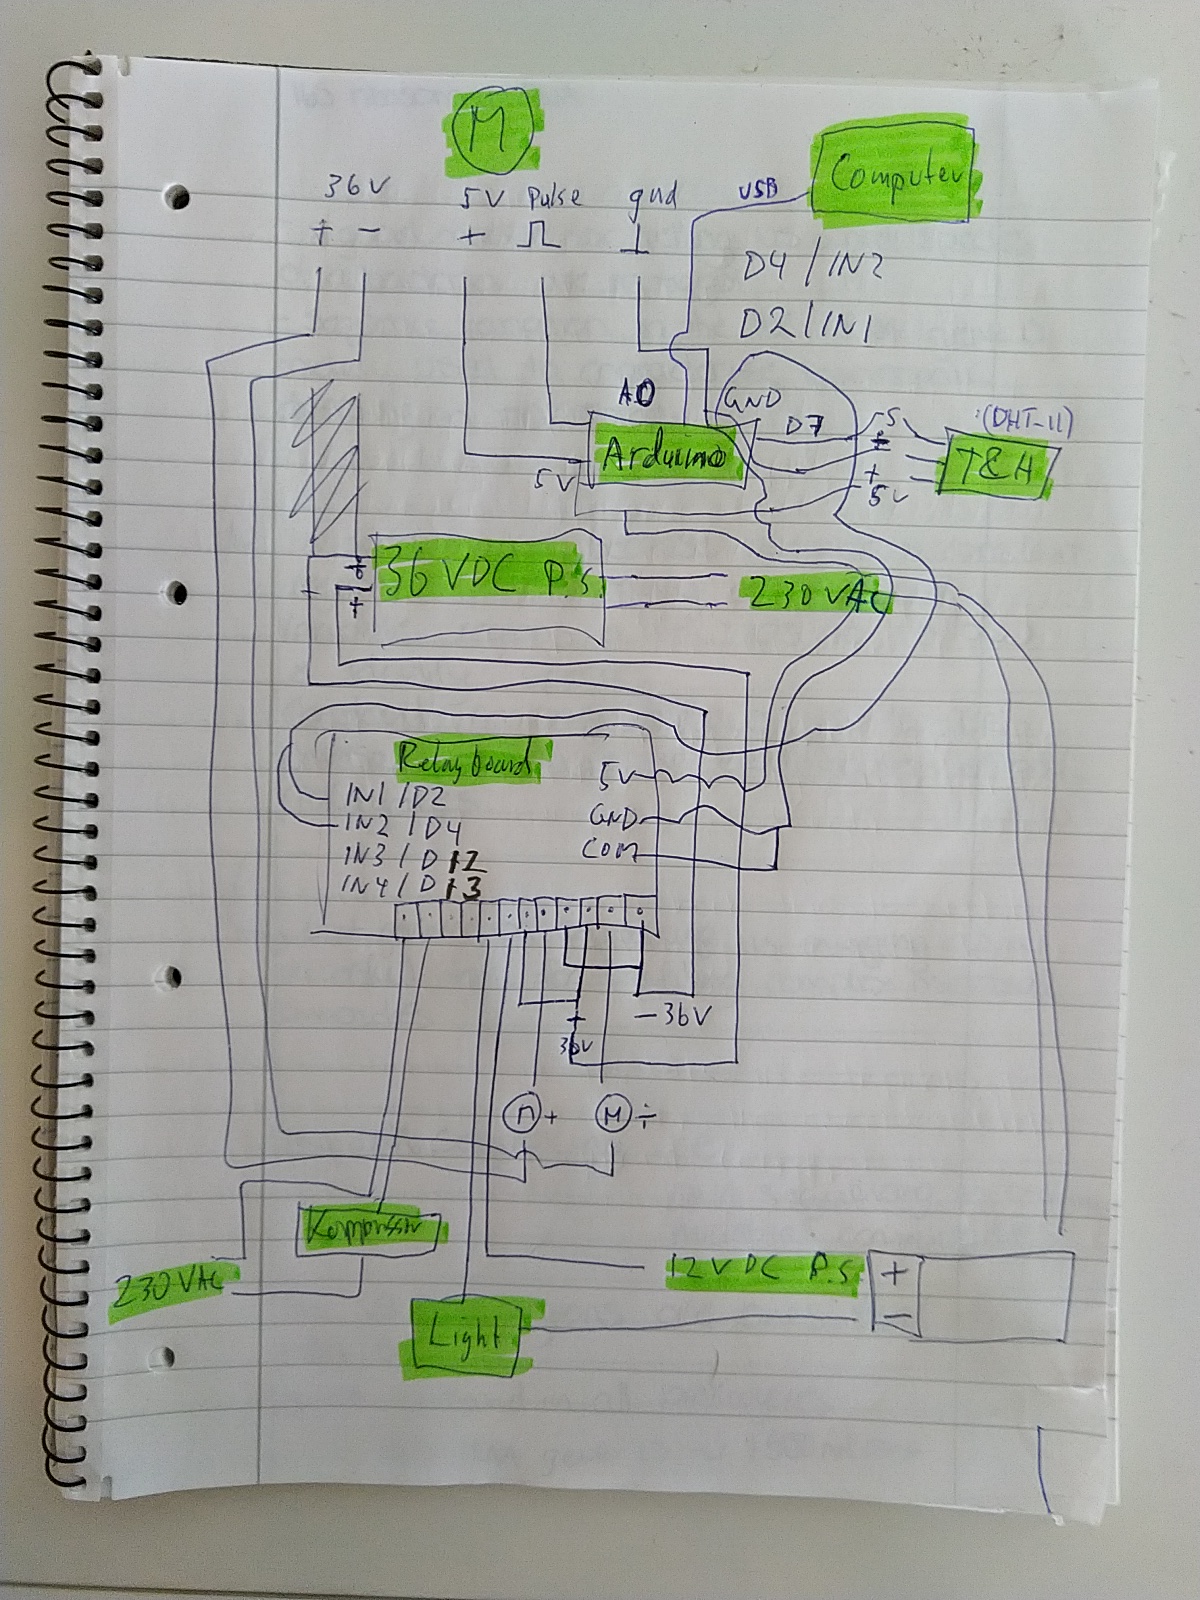 M
Computer
36V
5V Pulse gnd
USB
+ -
+
D4 / IN2
D2 / IN1
A0
GND
D7
S
(DHT-11)
Arduino
T&H
+
5V
5V
36 VDC P.S.
÷
+
230 VAC
Relayboard
5V
IN1 / D2
GND
IN2 / D4
COM
IN3 / D12
IN4 / D13
+
36V
-36V
M +
M ÷
Kompressor
230 VAC
12V DC P.S.
+
-
Light